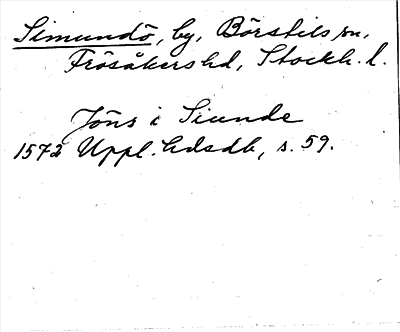 Simundö, by, Börstils sn,
Frösåkers hd, Stockh. l.
Jöns i Siunde
1572 Uppl. hdsdb, s. 59.